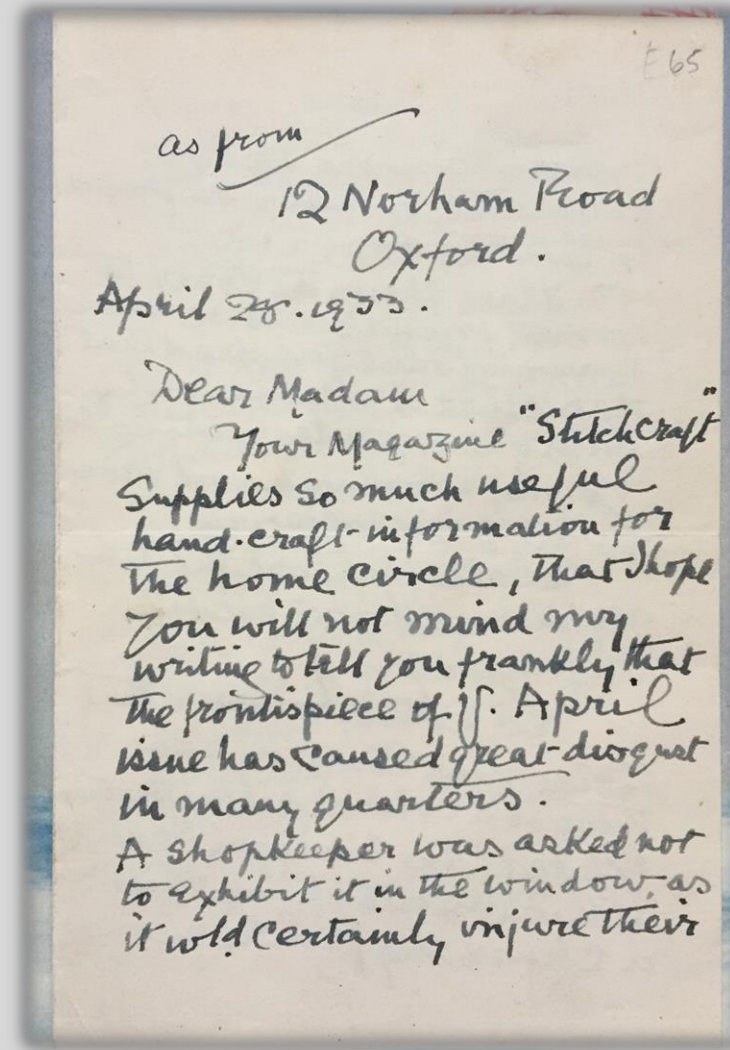 E65
as from
12 Norham Road
Oxford.
April 28. 1933.
Dear Madam
Your Magazine "Stitchcraft"
Supplies so much useful
hand-craft-information for
the home circle, that I hope
you will not mind my
writing to tell you frankly that
the frontispiece of yr. April
issue has caused great disgust
in many quarters.
A shopkeeper was asked not
to exhibit it in the window, as
it wld certainly injure their